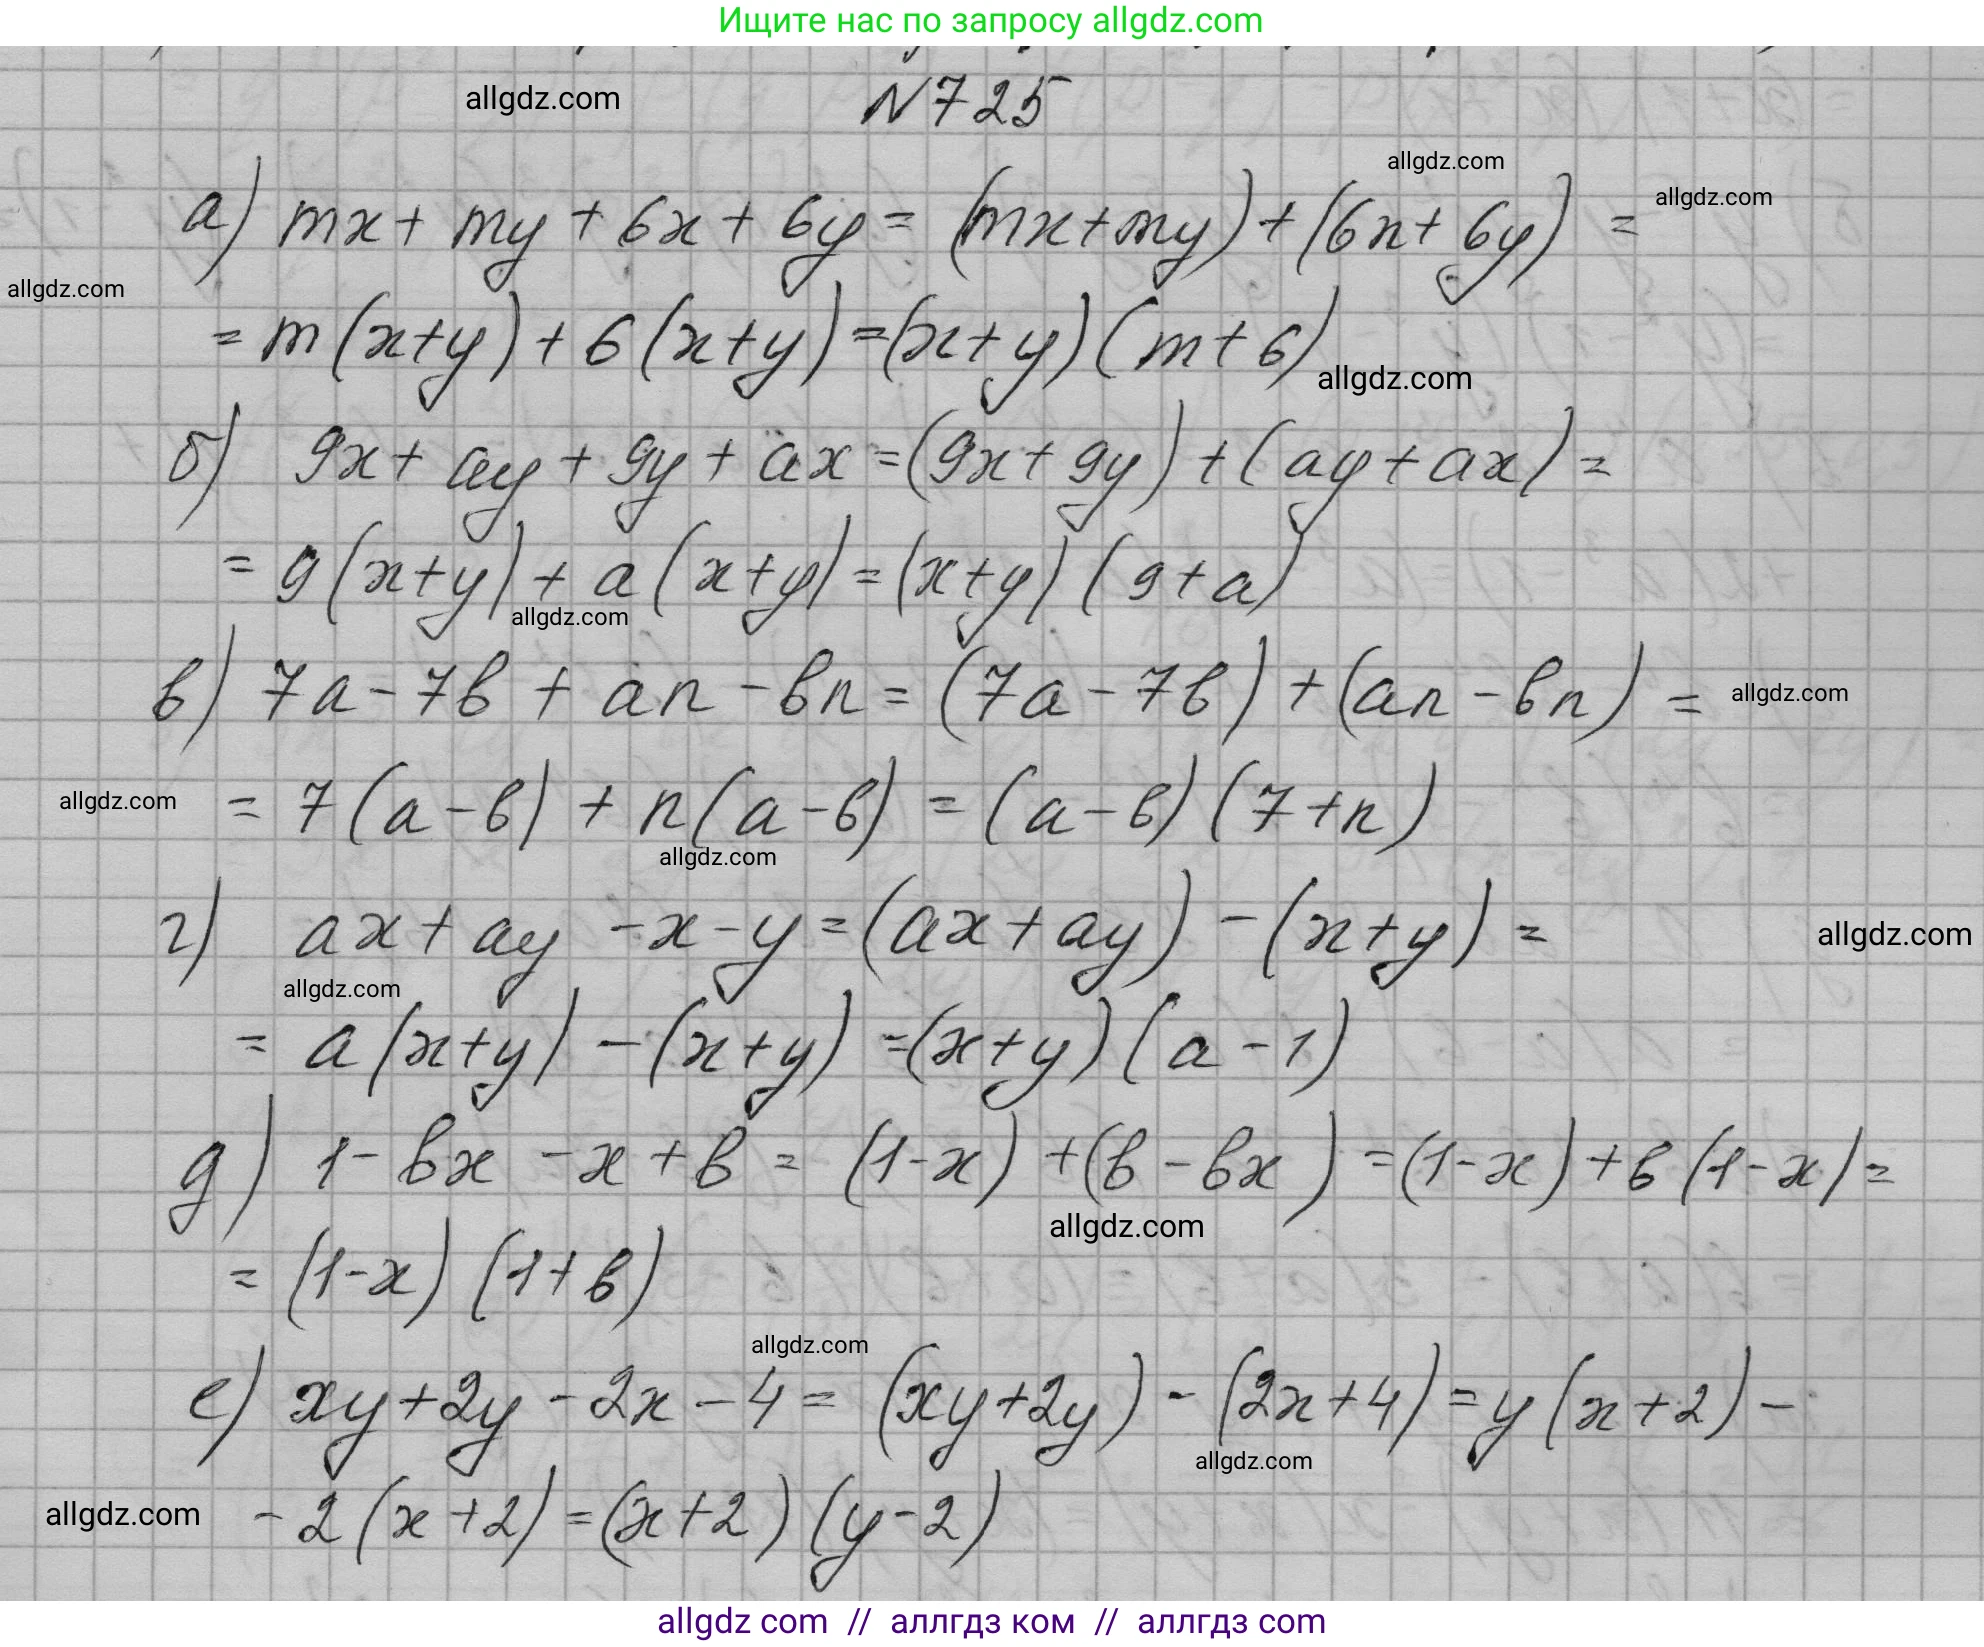 Ищите нас по запросу allgdz.com
allgdz.com
N725
allgdz.com
allgdz.com
а) mx + my + 6x + 6y = (mx+my) + (6x + 6y) =
allgdz.com
= m(x+y) + 6(x+y) = (x+y)(m+6)
allgdz.com
б) 9x + ay + 9y + ax = (9x + 9y) + (ay + ax) =
= 9(x+y) + a(x+y) = (x+y)(9+a)
allgdz.com
в) 7a - 7b + an - bn = (7a - 7b) + (an - bn) =
allgdz.com
allgdz.com
= 7(a-b) + n(a-b) = (a-b)(7+n)
allgdz.com
г) ax + ay - x - y = (ax + ay) - (x+y) =
allgdz.com
allgdz.com
= a(x+y) - (x+y) = (x+y)(a-1)
д) 1 - bx - x + b = (1-x) + (b - bx) = (1-x) + b(1-x) =
allgdz.com
= (1-x)(1+b)
allgdz.com
е) xy + 2y - 2x - 4 = (xy+2y) - (2x+4) = y(x+2) -
allgdz.com
allgdz.com
- 2(x+2) = (x+2)(y-2)
allgdz com // аллгдз ком // аллгдз com